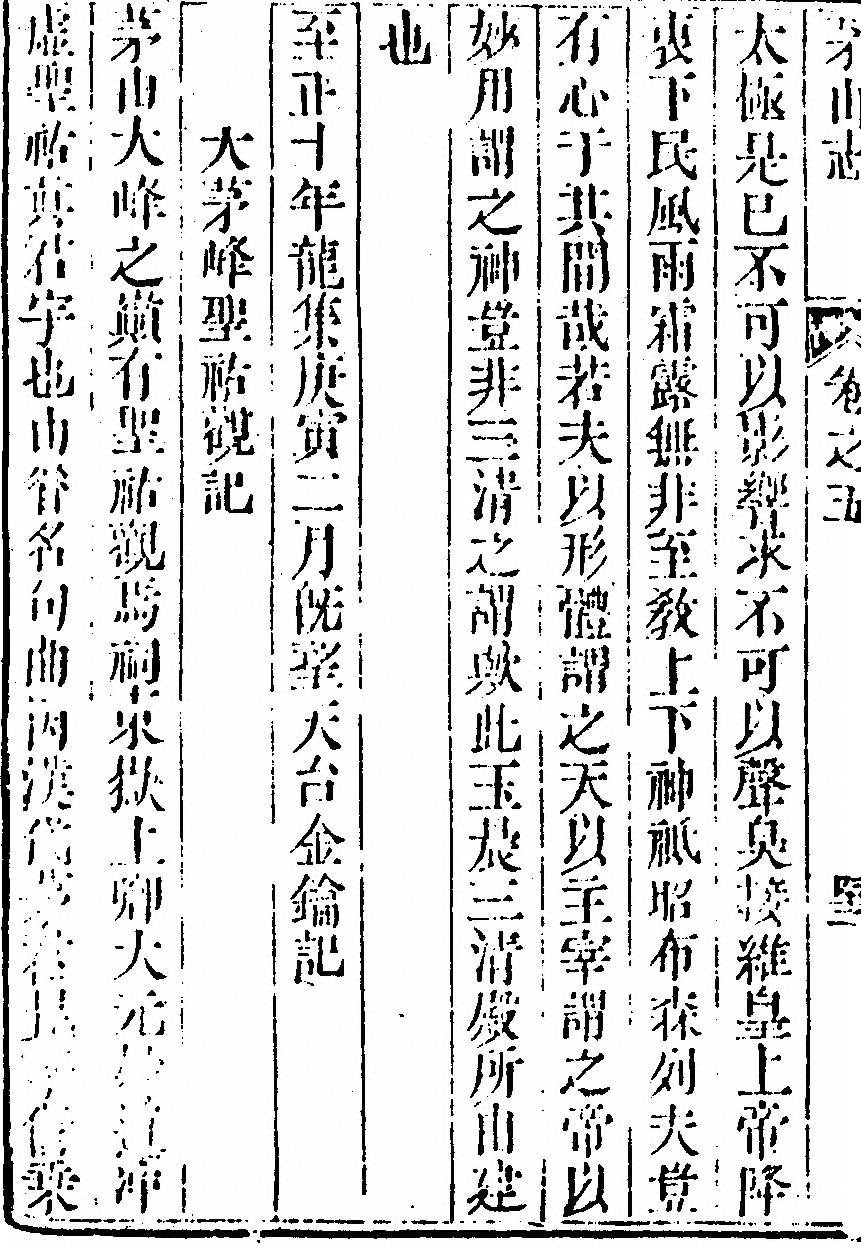 茅山志 卷之五
太極是已不可以影響求不可以聲臭接維皇上帝降
衷下民風雨霜露無非至教上下神祇昭布森列夫豈
有心于其間哉若夫以形體謂之天以主宰謂之帝以
妙用謂之神豈非三清之謂歟此玉晨三清殿所由建
也
至正十年龍集庚寅二月既望天台金鑰記
大茅峰聖祐觀記
茅山大峰之巔有聖祐觀焉祠東嶽上卿大元妙道冲
虛聖祐真君宇也山昔名句曲西漢